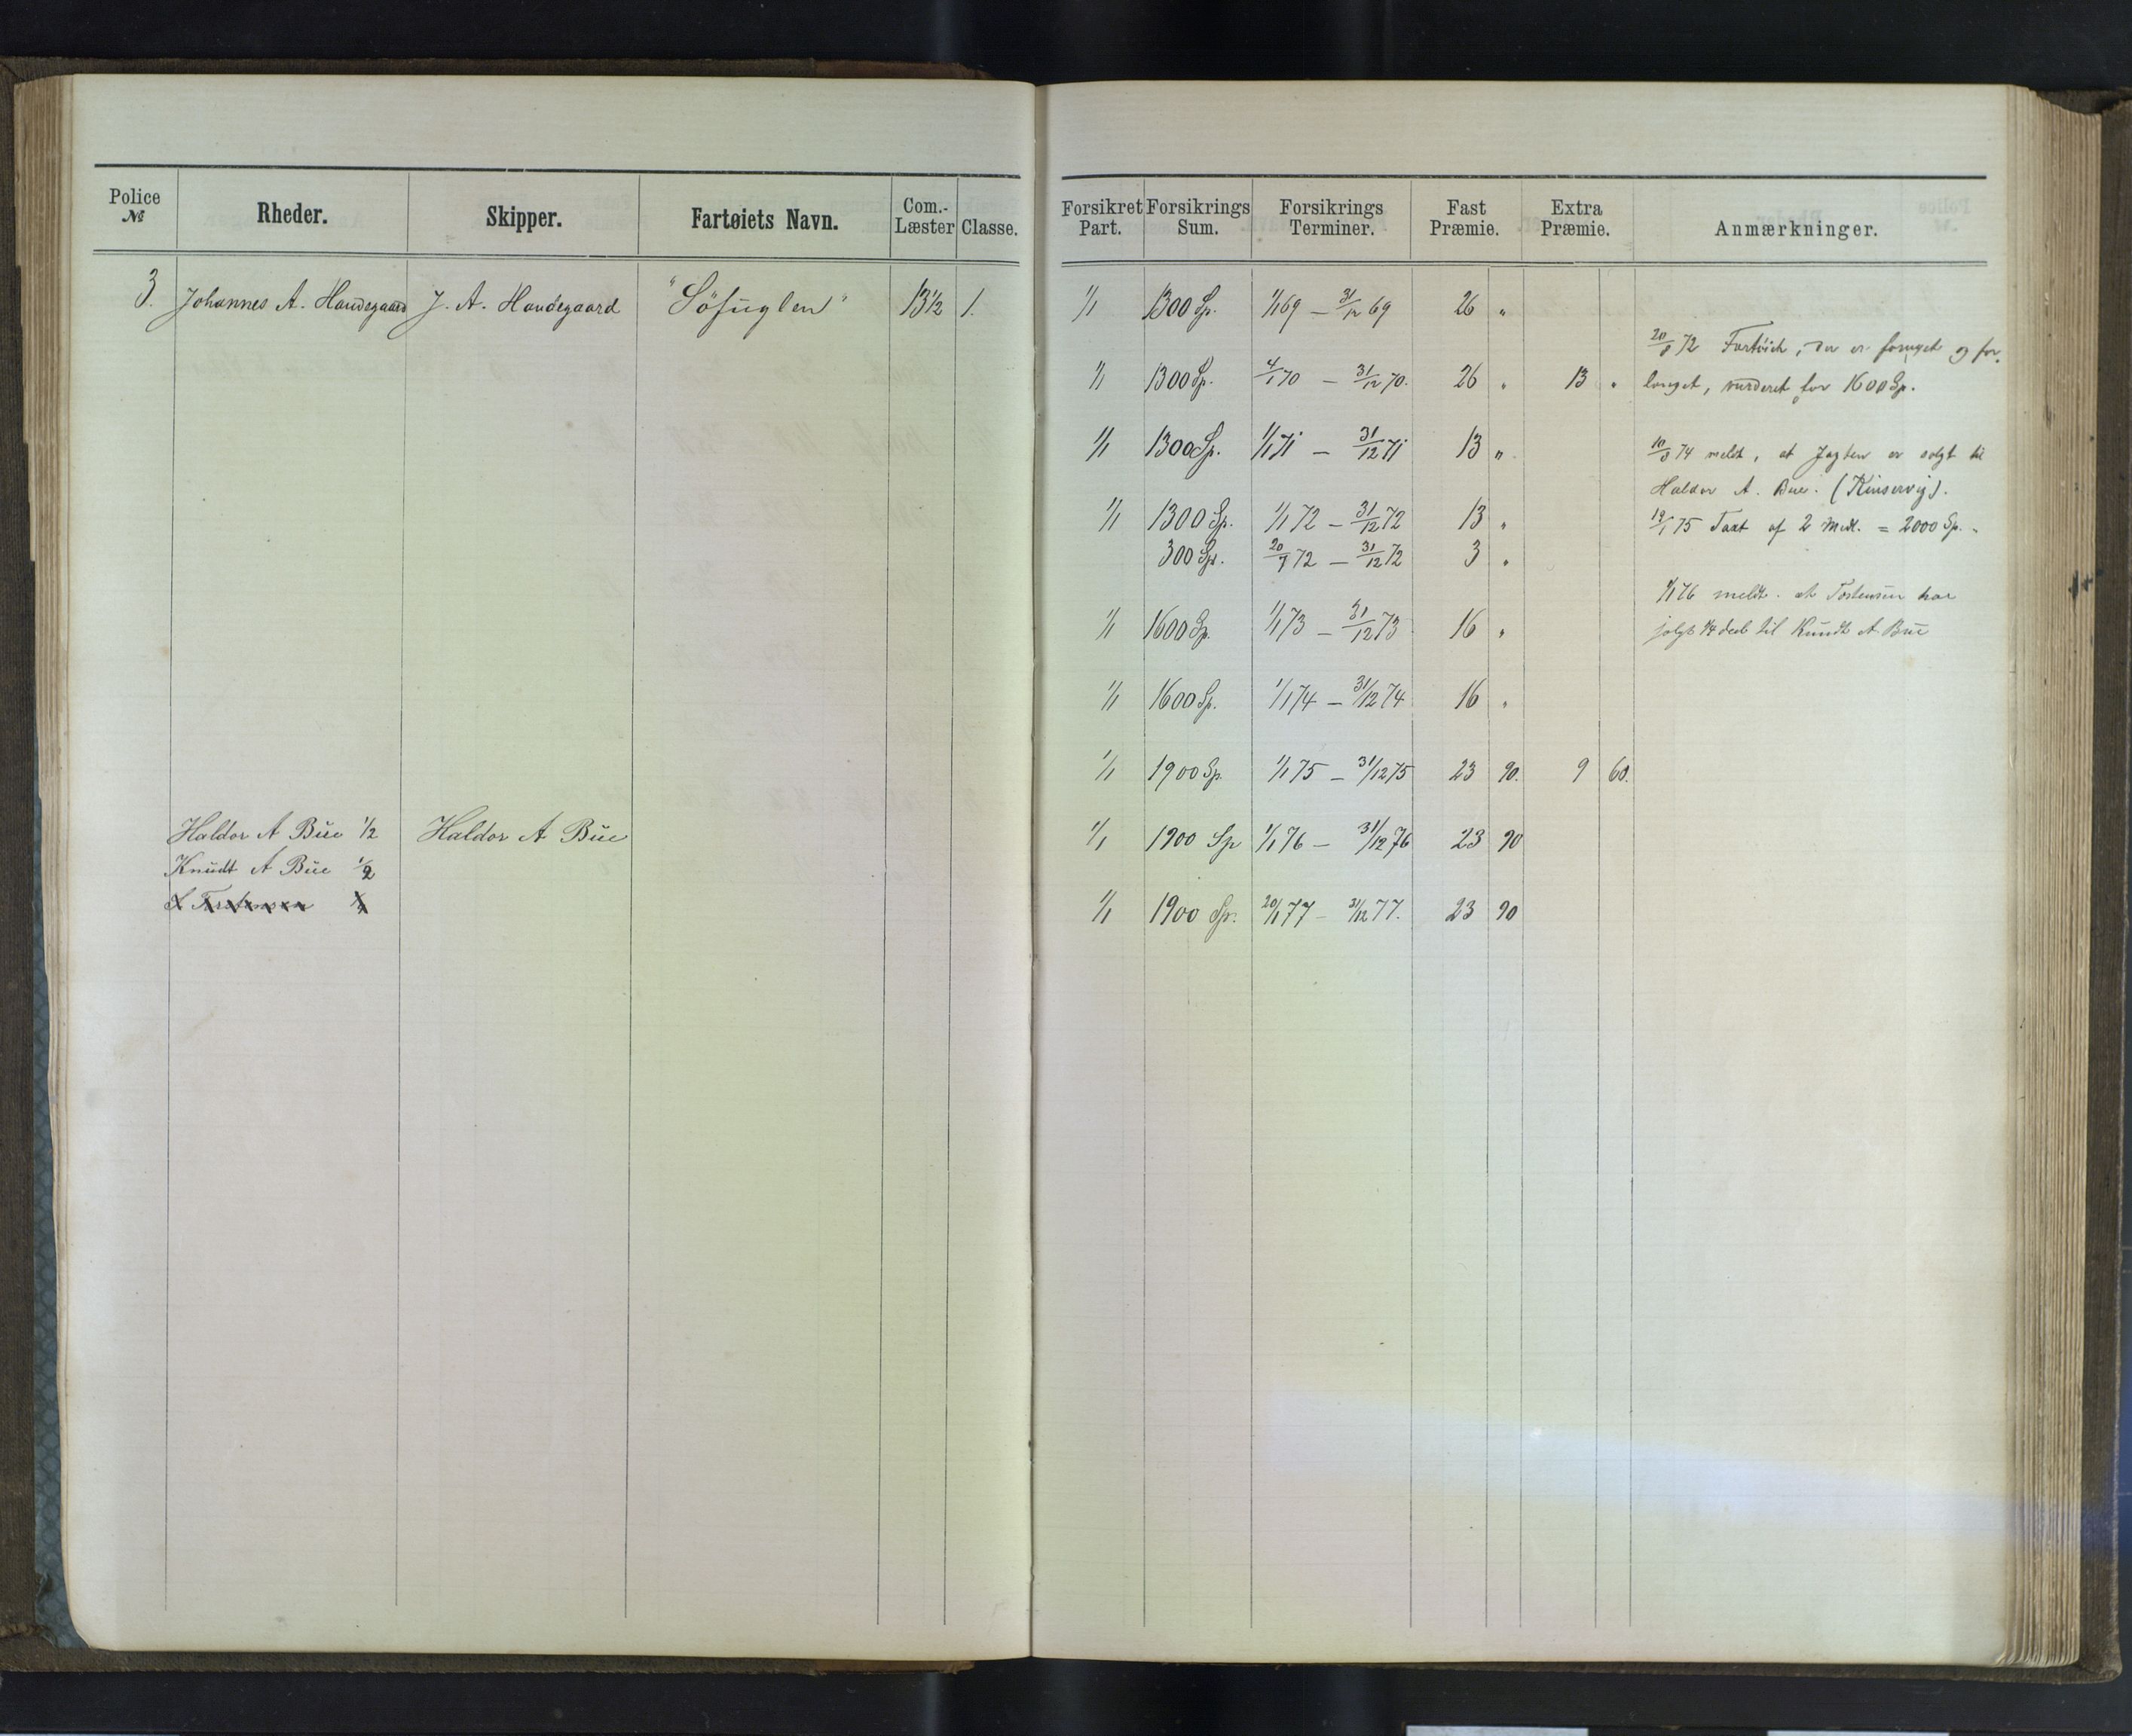 Police № Rheder. Skipper. Fartøiets Navn. Com.-Læster Classe. Forsikret Part. Forsikrings Sum. Forsikrings Terminer. Fast Præmie. Extra Præmie. Anmærkninger.
3. Johannes A. Haudegaard J. A. Haudegaard "Söfuglen" 13 1/2 1. 1/1 1300 Sp. 1/1 69 – 31/12 69 26 "
1/1 1300 Sp. 4/1 70 – 31/12 70. 26 " 13 "
1/1 1300 Sp. 1/1 71 – 31/12 71 13 "
1/1 1300 Sp. 1/1 72 – 31/12 72 13 "
300 Sp. 72 – 31/12 72 3 "
1/1 1600 Sp. 1/1 73 – 31/12 73 16 "
1/1 1600 Sp. 1/1 74 – 31/12 74 16 "
1/1 1900 Sp. 1/1 75 – 31/12 75 23 90. 9 60.
Haldor A Büe 1/2 Haldor A Büe 1/1 1900 Sp 1/1 76 – 31/12 76 23 90
Knüdt A Büe 1/2
Torstensen
1/1 1900 Sp. 20/1 77 – 31/12 77. 23 90
72 Fartöiet, der er forøget og for-
længet, vurderet for 1600 Sp.
74 meldt, at Jagten er solgt til
Haldor A. Bue. (Kinservig).
19/1 75 Taxt af 2 Mdl. = 2000 Sp.
76 meldt. at Torstensen har
solgt 1/4 deel til Knüdt A Büe